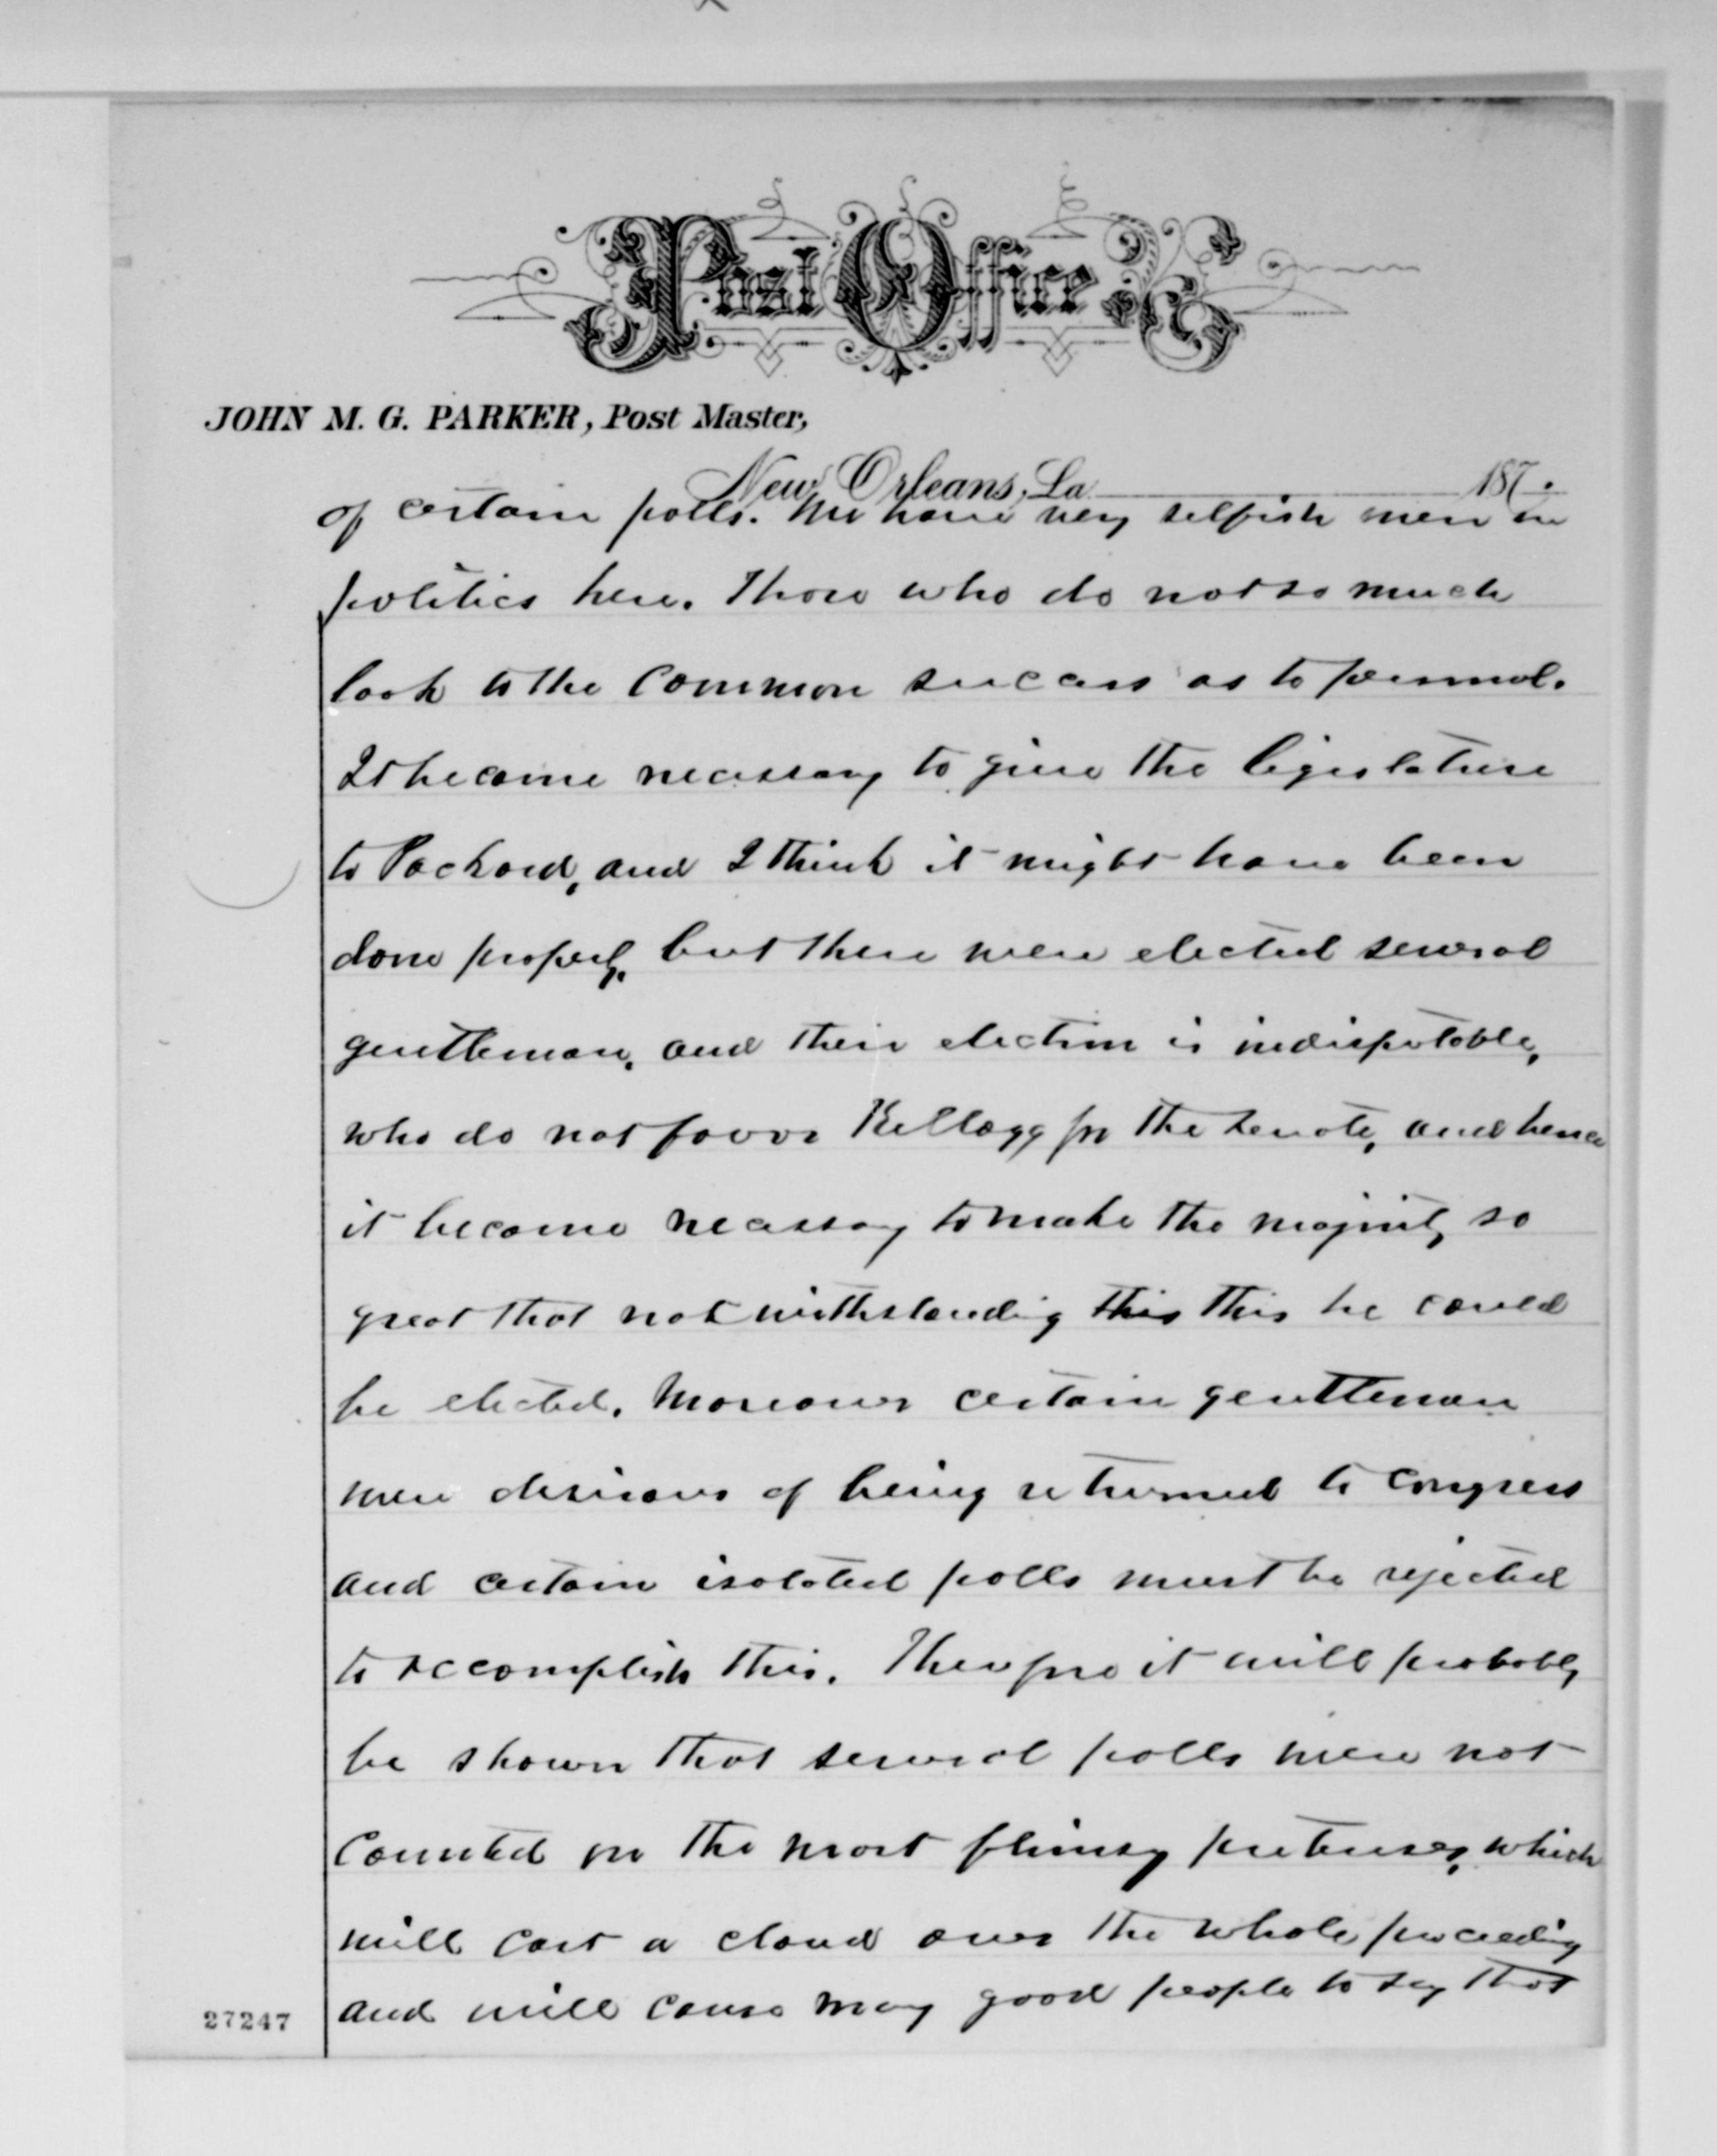 Post Office
JOHN M. G. PARKER, Post Master,
New Orleans, La. 187 .
of certain polls. We have very selfish men in
politics here. Those who do not so much
look to the Common success as to personal.
It became necessary to give the legislature
to Packard, and I think it might have been
done properly, but there were elected several
gentleman, and their election is indisputable,
who do not favor Kellogg for the Senate, and hence
it became necessary to make the majority so
great that notwithstanding this this he could
be elected. Moreover certain gentleman
were desirous of being returned to Congress
and certain isolated polls must be rejected
to accomplish this. Therefore it will probably
be shown that several polls were not
counted on the most flimsy pretenses, which
will cast a cloud over the whole proceeding
and will cause many good people to say that
27247